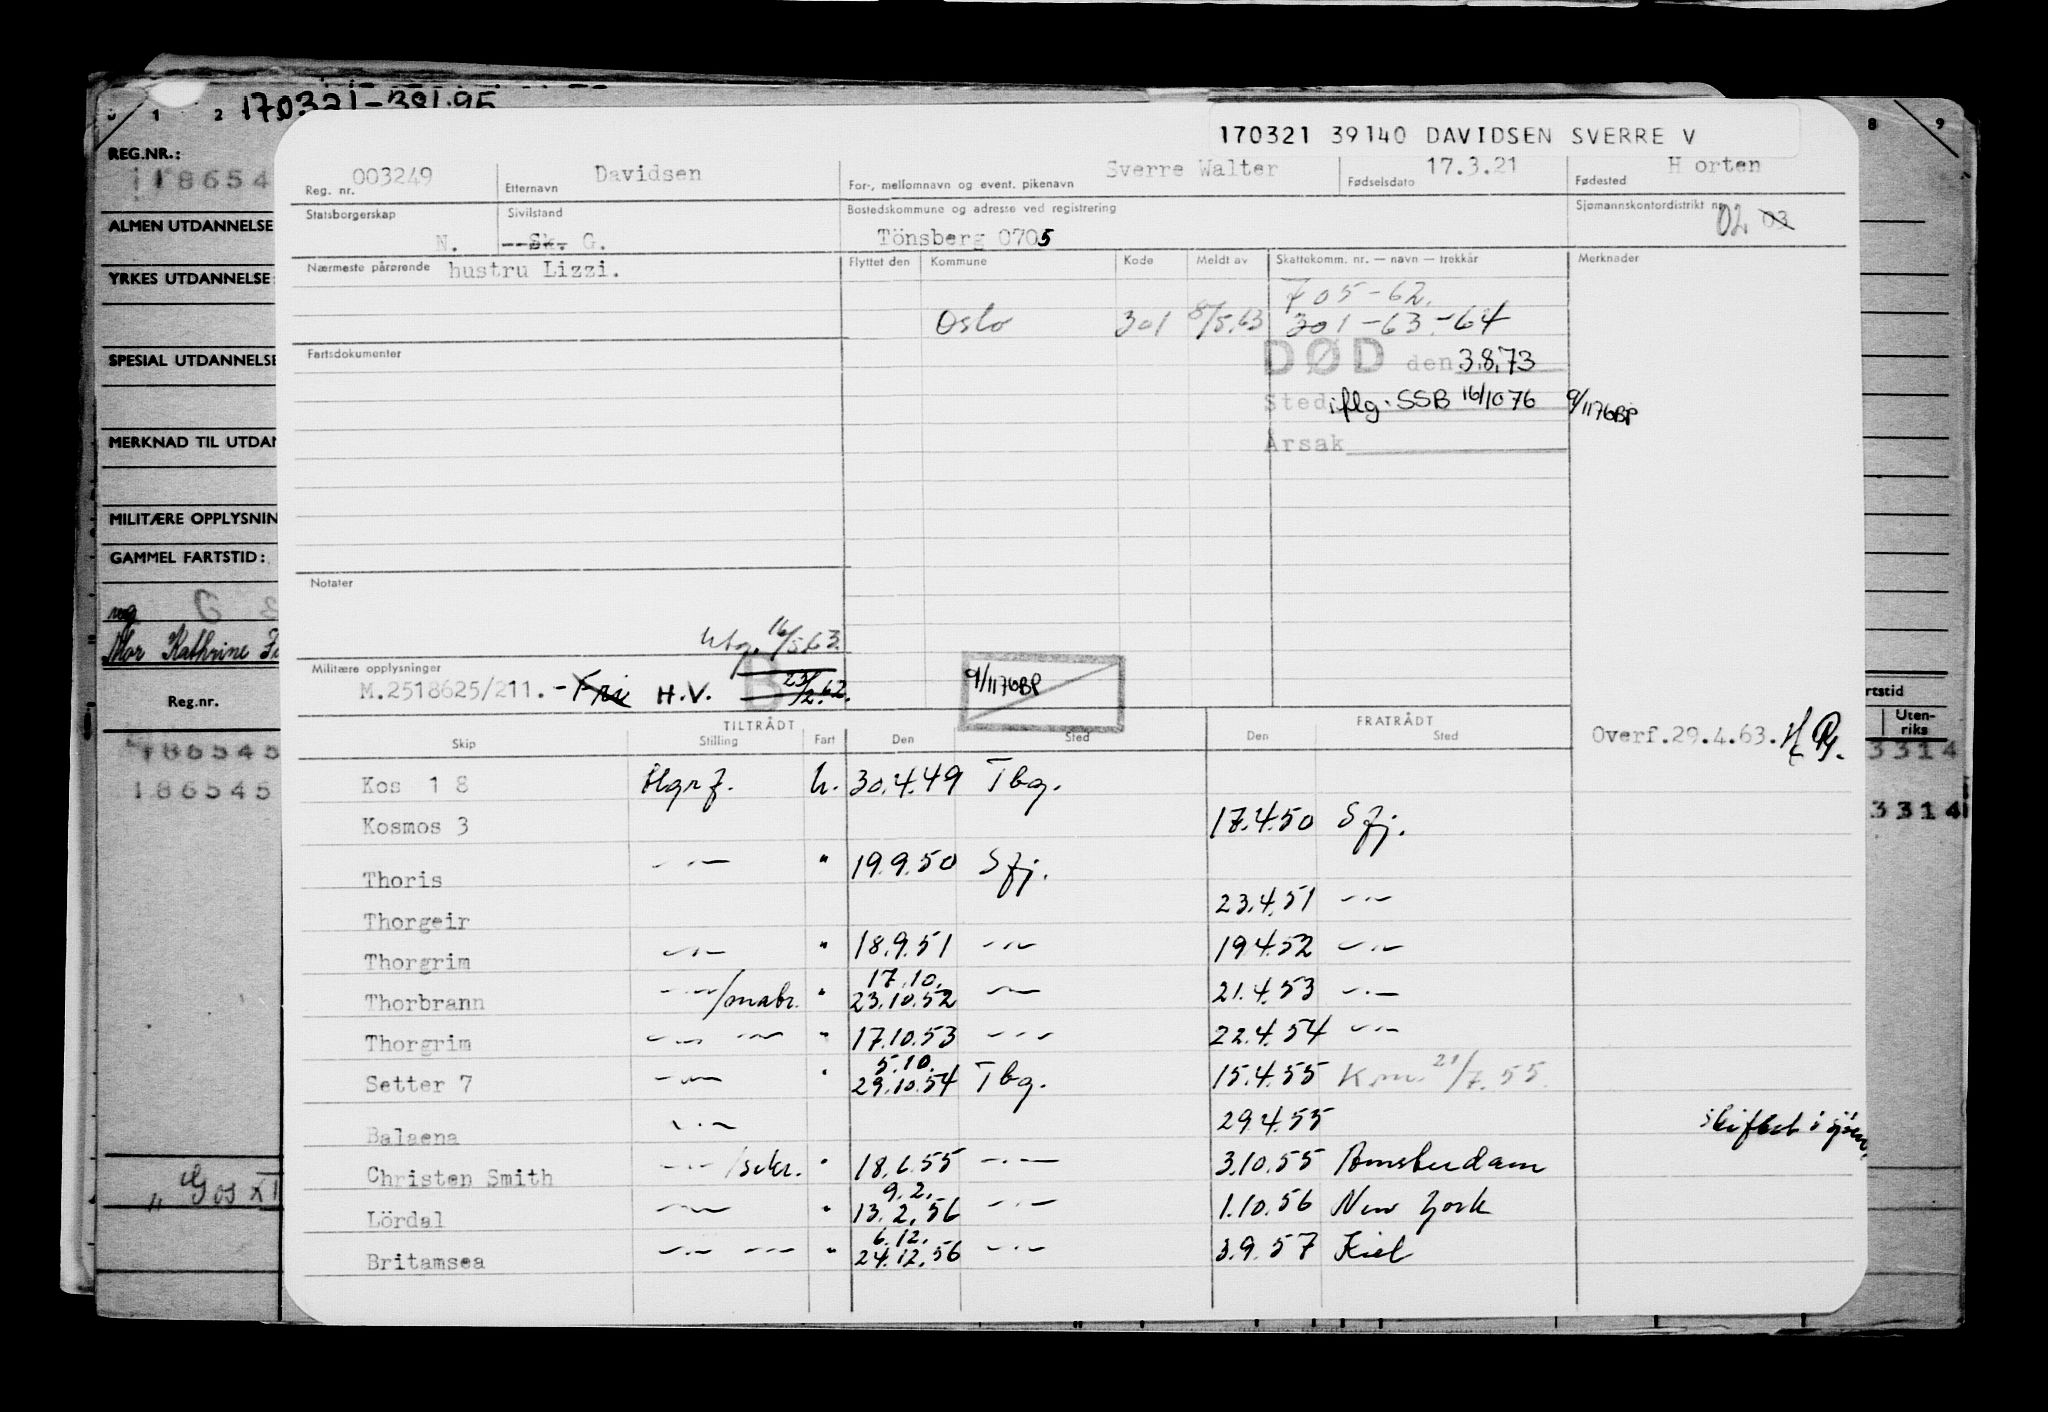 0 1 2 170321-391.95 8 9
REG.NR.:
118654
ALMEN UTDANNELSE
YRKES UTDANNELSE:
SPESIAL UTDANNELSE
MERKNAD TIL UTDAN
MILITÆRE OPPLYSNIN
GAMMEL FARTSTID:
Mor Kathrine
Reg.nr.
186545
186545
" Gos XI
rtstid
Uten-
riks
3314
3314
170321 39140 DAVIDSEN SVERRE V
Reg. nr. 003249 Etternavn Davidsen For-, mellomnavn og event. pikenavn Sverre Walter Fødselsdato 17.3.21 Fødested H orten
Statsborgerskap N. Sivilstand --Sk. G. Bostedskommune og adresse ved registrering Tönsberg 0705 Sjømannskontordistrikt nr. 02 03
Nærmeste pårørende hustru Lizzi. Flyttet den Kommune Kode Meldt av Skattekomm. nr. — navn — trekkår Merknader
705-62.
Oslo 301 8/5.63 301-63-64
Fartsdokumenter
DØD den 3.8.73
Sted iflg. SSB 16/10 76 9/1176BP
Årsak
Notater
Utg. 16/5.63.
Militære opplysninger
M.2518625/211. - Fri H.V. B 23/2.62. 9/1176BP
TILTRÅDT FRATRÅDT
Skip Stilling Fart Den Sted Den Sted
Overf.29.4.63.
Kos 1 8 Hgrf. U. 30.4.49 Tbg.
Kosmos 3 17.4.50 Sfj.
Thoris —"— " 19.9.50 Sfj.
Thorgeir 23.4.51 —"—
Thorgrim —"— " 18.9.51 —"— 19.4.52 —"—
Thorbrann —"—/mabr. " 17.10. 23.10.52 —"— 21.4.53 —"—
Thorgrim —"— —"— " 17.10.53 —"— 22.4.54 —"—
Setter 7 —"— " 5.10. 29.10.54 Tbg. 15.4.55 Km. 21/7.55.
Balaena —"— 29.4.55 skiftet i sjöen
Christen Smith —"—/sekr. " 18.6.55 —"— 3.10.55 Amsterdam
Lördal —"— " 9.2. 13.2.56 —"— 1.10.56 New York
Britamsea —"— —"— " 6.12. 24.12.56 —"— 3.9.57 Kiel